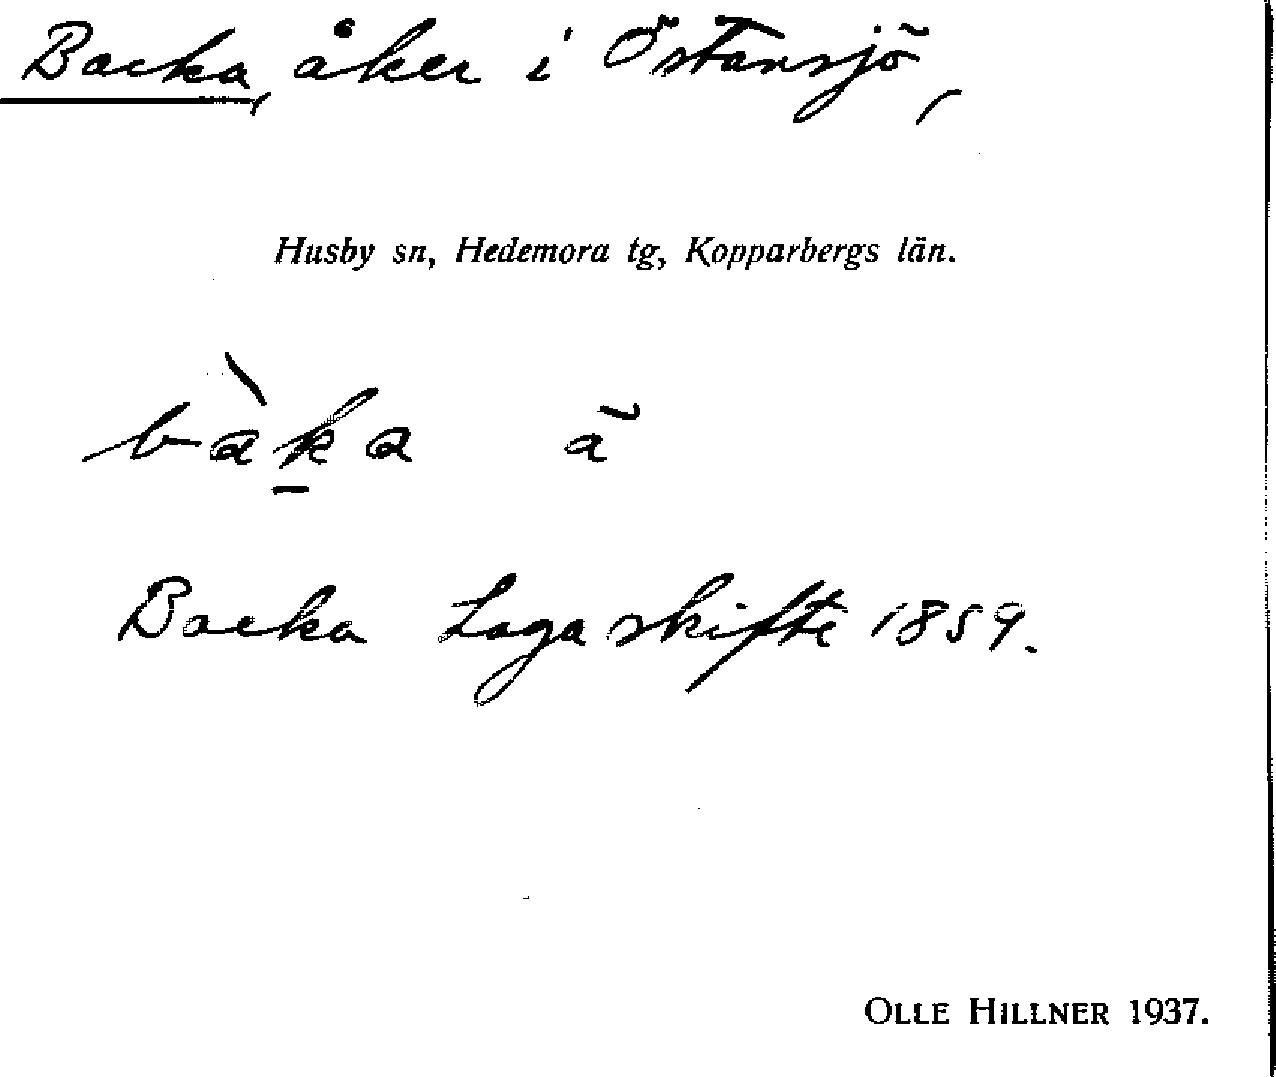 Backa, åker i Östansjö,
Husby sn, Hedemora tg, Kopparbergs län.
bàk̲a ã
Backa Laga skifte 1859.
OLLE HILLNER 1937.